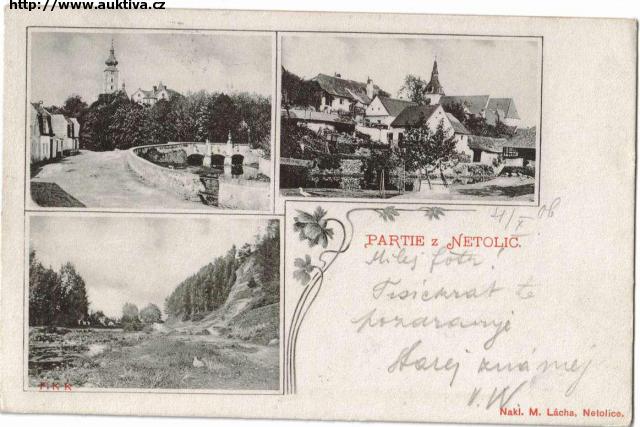 http://www.auktiva.cz
4/X 06
PARTIE z NETOLIC.
Milej
Tisíckrat te
pozdravuje
Starej známej
V. W
Nakl. M. Lácha, Netolice.